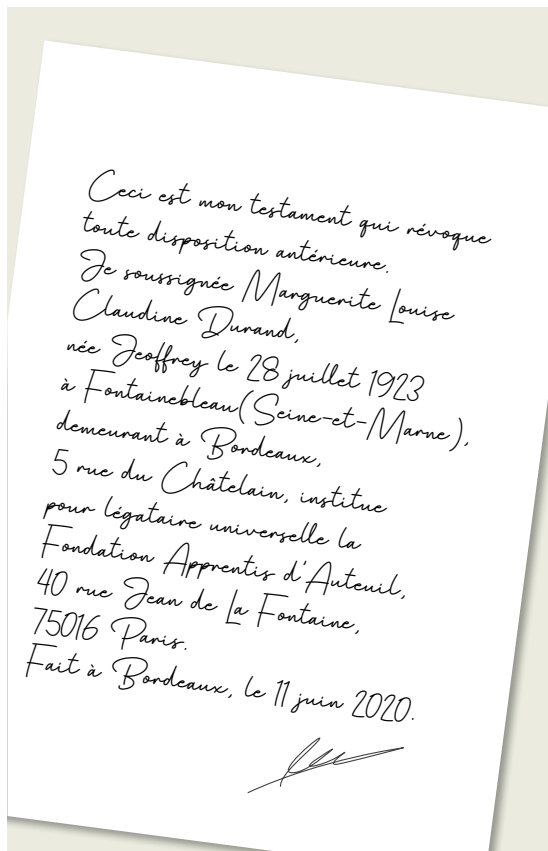 Ceci est mon testament qui révoque
toute disposition antérieure.
Je soussignée Marguerite Louise
Claudine Durand,
née Jeoffrey le 28 juillet 1923
à Fontainebleau(Seine-et-Marne),
demeurant à Bordeaux,
5 rue du Châtelain, institue
pour légataire universelle la
Fondation Apprentis d'Auteuil,
40 rue Jean de La Fontaine,
75016 Paris.
Fait à Bordeaux, le 11 juin 2020.